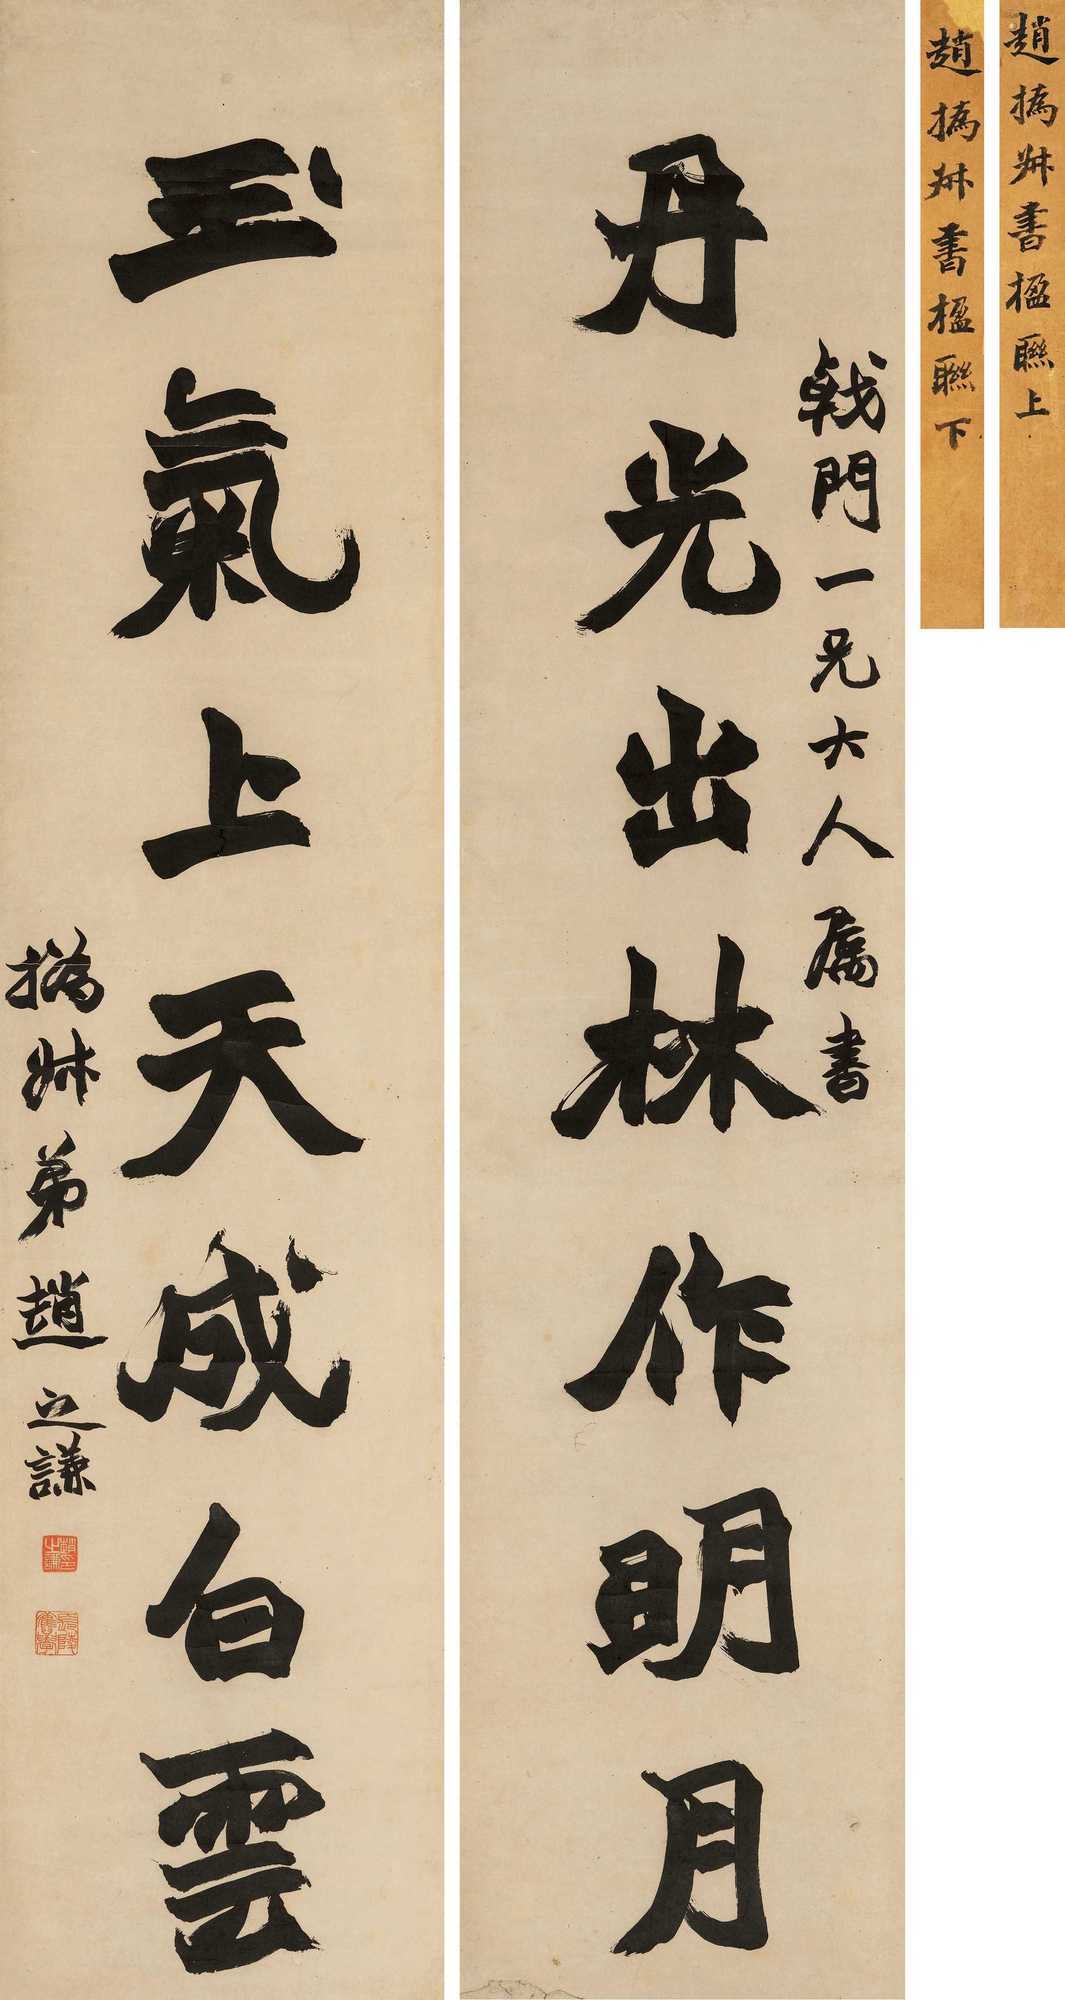 趙撝叔書楹聯上
趙撝叔書楹聯下
戟門一兄大人属書
丹光出林作明月
玉氣上天成白雲
撝叔弟趙之謙